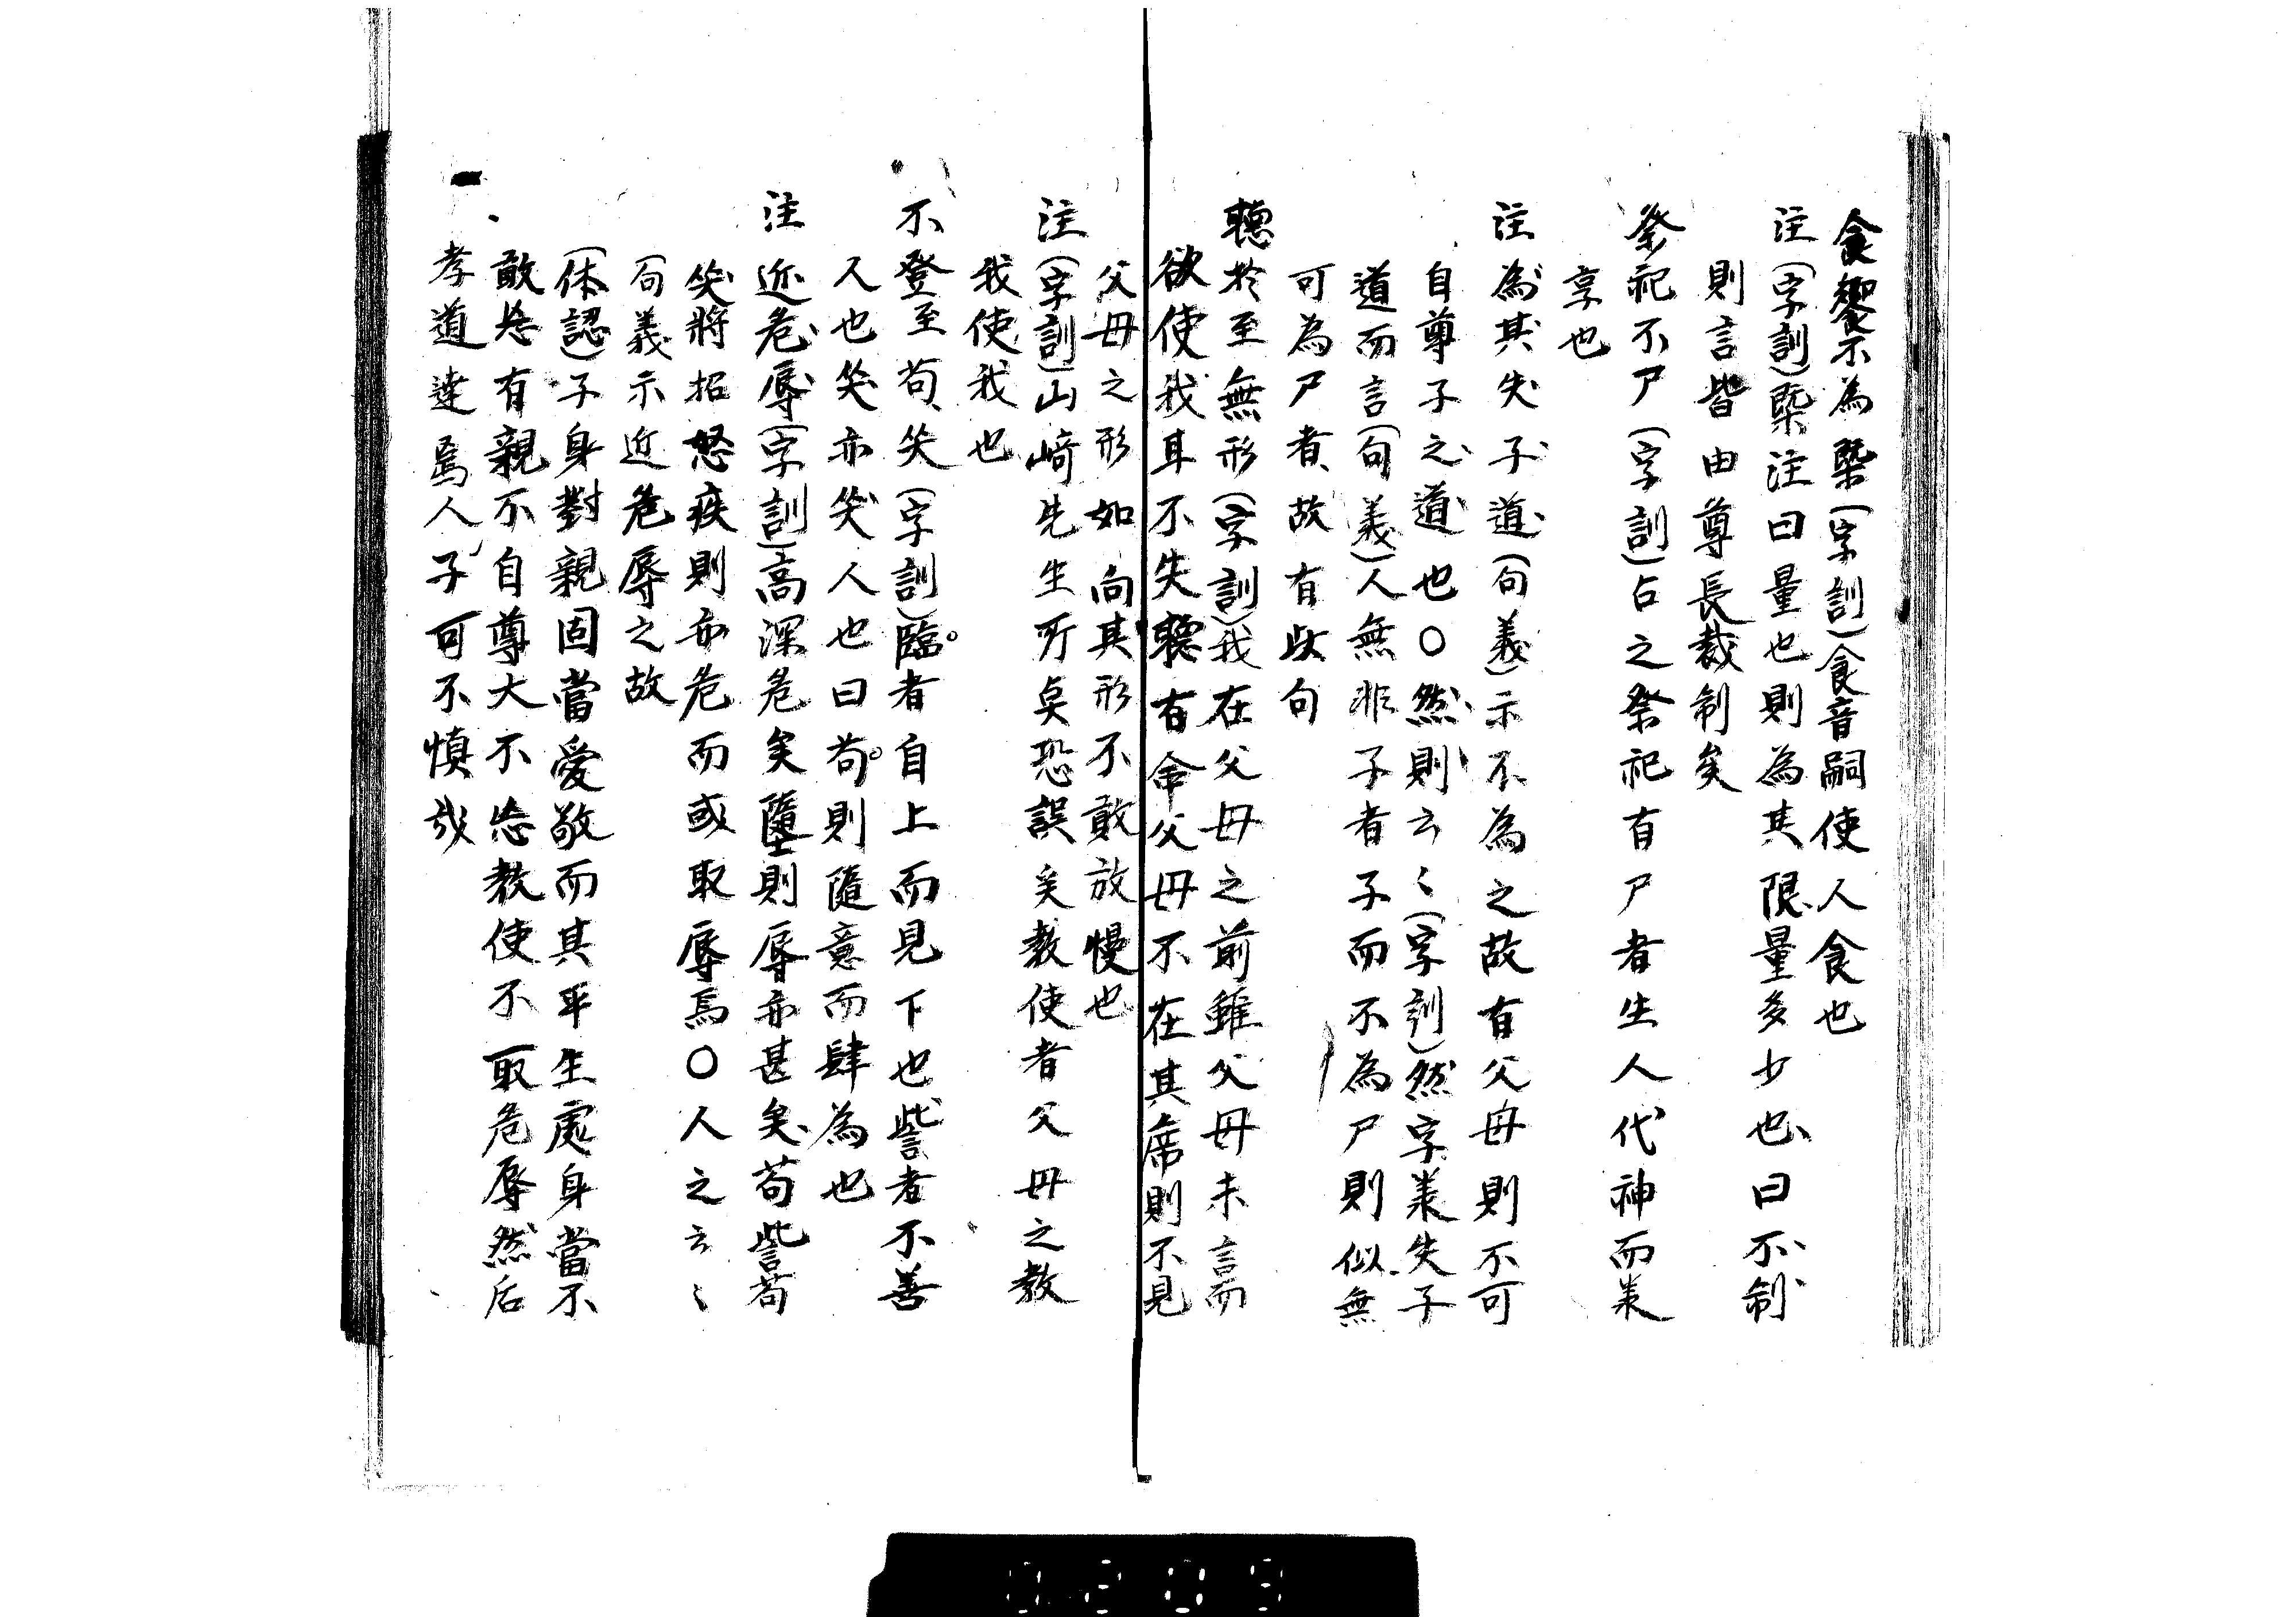 食饗不為槩(字訓)食音嗣使人食也
注(字訓)槩注曰量也則為其限量多少也曰不制
則言皆由尊長裁制矣
祭祀不尸(字訓)占之祭祀有尸者生人代神而
享也
注為其失子道(句義)示不為之故有父母則不可
自尊子之道也○然則云〻(字訓)然字義失子
道而言(句義)人無非子者子而不為尸則似無
可為尸者故有此句
聽於至無形(字訓)我在父母之前雖父母未言而
欲使我耳不失聽有命父母不在其席則不見
父母之形如向其形不敢放慢也
注(字訓)山﨑先生所点恐誤矣教使者父母之教
我使我也
不登至苟笑(字訓)臨者自上而見下也訾者不善
人也笑亦笑人也曰苟則隨意而肆為也
注近危辱(字訓)高深危矣墮則辱亦甚矣苟訾苟
笑將招怒疾則亦危而或取辱焉○人之云〻
(句義示近危辱之故
(体認)子身對親固當愛敬而其平生處身當不
敢忘有親不自尊大不忘教使不取危辱然后
孝道達焉人子可不慎哉